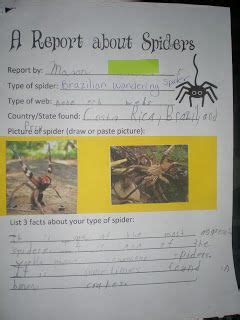 A Report about Spiders
Report by: Mason
Type of spider: Brazilian Wandering Spider
Type of web: webs
Country/State found: Costa Rica, Brazil, and
Peru
Picture of spider (draw or paste picture):
List 3 facts about your type of spider:
It is one of the most
spiders. It is one of the
spiders.
It is sometimes found in